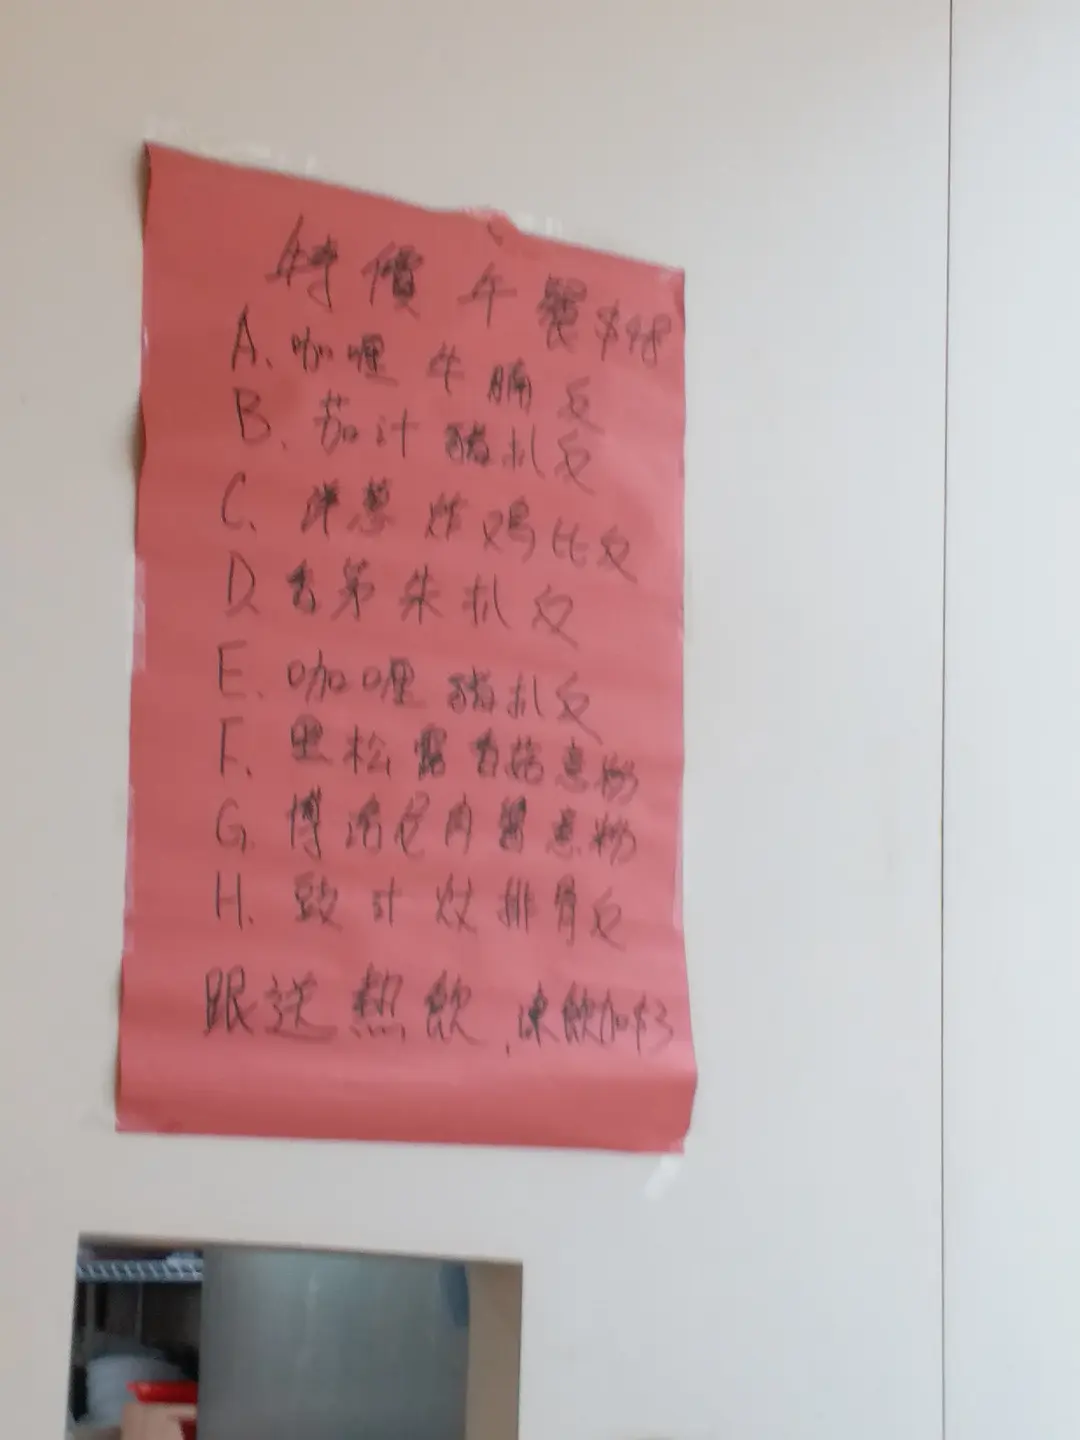 特價午餐$48
A. 咖喱牛腩反
B. 茄汁豬扒反
C. 洋葱炸鸡比反
D. 香茅朱扒反
E. 咖喱豬扒反
F. 黑松露香菇意粉
G. 博洛尼肉醬意粉
H. 豉汁炆排骨反
跟送熱飲,凍飲加$3